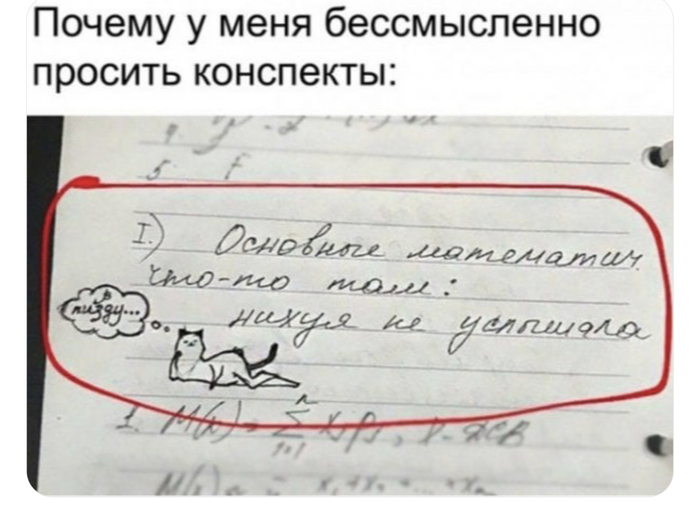 Почему у меня бессмысленно
просить конспекты:
5 f
I.) Основные математич.
что-то там:
в
пизду...
нихуя не услышала
1. M(x) = Σ xᵢpᵢ, x - ДСВ